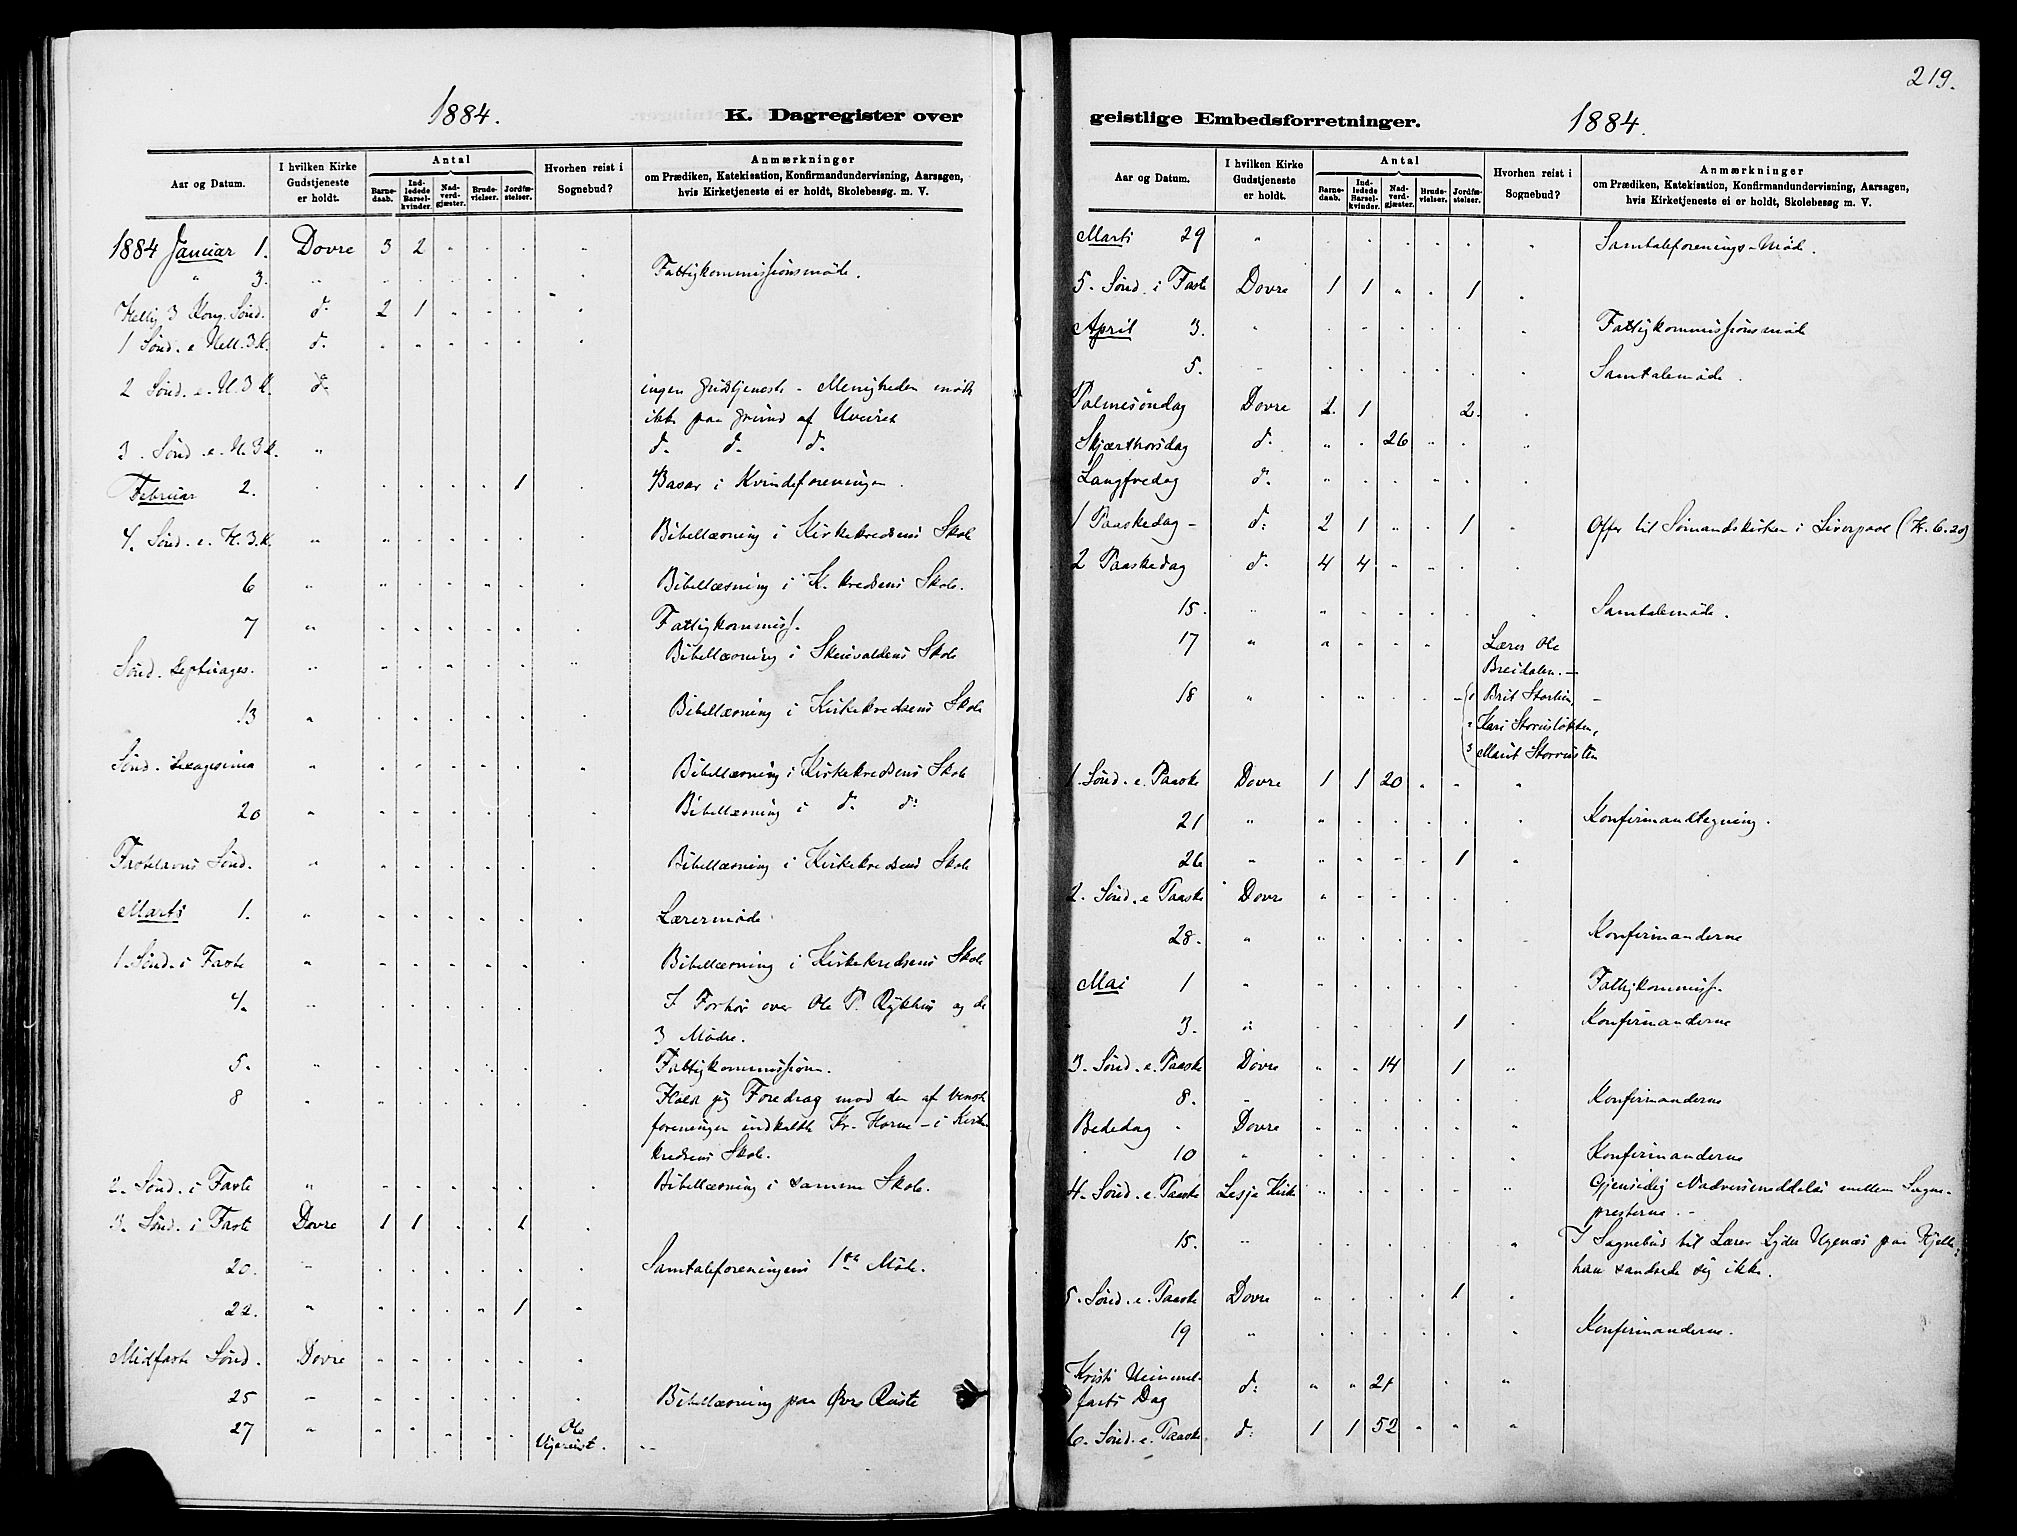 1884.
K. Dagregister over
Aar og Datum.
I hvilken Kirke Gudstjeneste er holdt.
Antal
Barnedaab.
Indledede Barselkvinder.
Nadverdgjæster.
Brudevielser.
Jordfæstelser.
Hvorhen reist i Sognebud?
Anmærkninger
om Prædiken, Katekisation, Konfirmandundervisning, Aarsagen,
hvis Kirketjeneste ei er holdt, Skolebesøg m. V.
1884 Januar 1. Dovre 3 2 " . . "
" 3. " Fattigkommissionsmøde.
Hellig 3 Kong. Sønd. d. 2 1 " . . "
1 Sønd. e. Hell. 3 K. d.
2 Sønd. e. H. 3 K. d. ingen gudstjeneste - Menigheden mødte
ikke paa grund af Uveiret
3. Sønd. e. H. 3 K. " d. d. d.
Februar 2. 1 Basar i Kvindeforeningen.
4. Sønd. e. H. 3. K. " Bibellæsning i Kirkekredsens Skole
6 " Bibellæsning i K. kredsens Skole.
7 " Fattigkommiss.
Sønd. Septuages. " Bibellæsning i Skole
13 " Bibellæsning i Kirkekredsens Skole
Sønd. Sexagesima " Bibellæsning i Kirkekredsens Skole
20 " Bibellæsning i d. d:
Fastelavns Sønd. " Bibellæsning i Kirkekredsens Skole
Marts 1. " Lærermøde
1. Sønd. i Faste " Bibellæsning i Kirkekredsens Skole
4. " I Forhør over Ole P. Rykhus og de
3 Mødre.
5. " Fattigkommission.
8 " Holdt jeg Foredrag mod den af Venstre
foreningen indkaldte Kr. Horne - i Kirke
kredsens Skole.
2. Sønd. i Faste " Bibellæsning i samme Skole.
3. Sønd. i Faste Dovre 1 1 . . 1
20. " Samtaleforeningens 1ste Møde.
22. " 1
Midfaste Sønd. Dovre
25 " Bibellæsning paa Øvre Ruste
27 " Ole
219.
geistlige Embedsforretninger.
1884.
Aar og Datum.
I hvilken Kirke Gudstjeneste er holdt.
Antal
Barnedaab.
Indledede Barselkvinder.
Nadverdgjæster.
Brudevielser.
Jordfæstelser.
Hvorhen reist i Sognebud?
Anmærkninger
om Prædiken, Katekisation, Konfirmandundervisning, Aarsagen,
hvis Kirketjeneste ei er holdt, Skolebesøg m. V.
Marts 29 " Samtaleforenings-Mød.
5. Sønd. i Faste Dovre 1 1 " . 1
April 3. " Fattigkommissionsmøde
5. " Samtalemøde.
Palmesøndag Dovre 1 2.
Skjærthorsdag d. " . 26
Langfredag d.
1 Paaskedag - d: 2 1 " . 1 Offer til Sømandskirken i Liverpool (Kr. 6.20)
2 Paaskedag d. 4 4
15. " Samtalemøde.
17 " Lærer Ole
Breidalen.-
18 " 1 Brit Storlien, -
2 Kari Storusløkken,
3 Marit Storrusten
1. Sønd. e. Paaske Dovre 1 1 20
21 " Konfirmandtegning.
26 " 1
2. Sønd. e. Paaske Dovre
28. " Konfirmanderne
Mai 1 " Fattigkommiss.
3. " 1 Konfirmanderne
3. Sønd. e. Paaske Dovre " " 14 . 1
8. " Konfirmanderne
Bededag " Dovre
10 " Konfirmanderne
4. Sønd. e. Paaske Lesja Kirke " Gjensidig Nadvermeddelse mellem Sogne-
presterne. -
15. " I Sognebud til Lærer paa
han sandsede sig ikke.
5. Sønd. e. Paaske Dovre 1
19 " Konfirmanderne.
Kristi Himmel-
farts Dag d: " " 21
6. Sønd. e. Paaske. d: 1 1 52